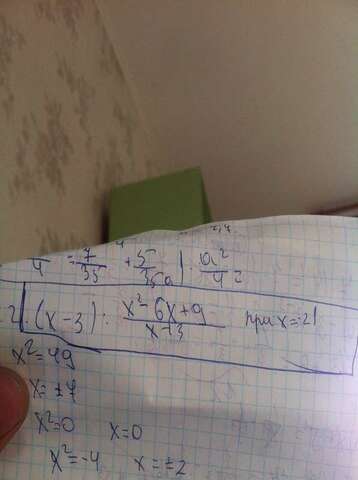 4 = 7/35 + 5/35a | a²/4²
2. (x-3) : x²-6x+9/x+3 при x=-21
x²=49
x=±7
x²=0 x=0
x²=-4 x=±2